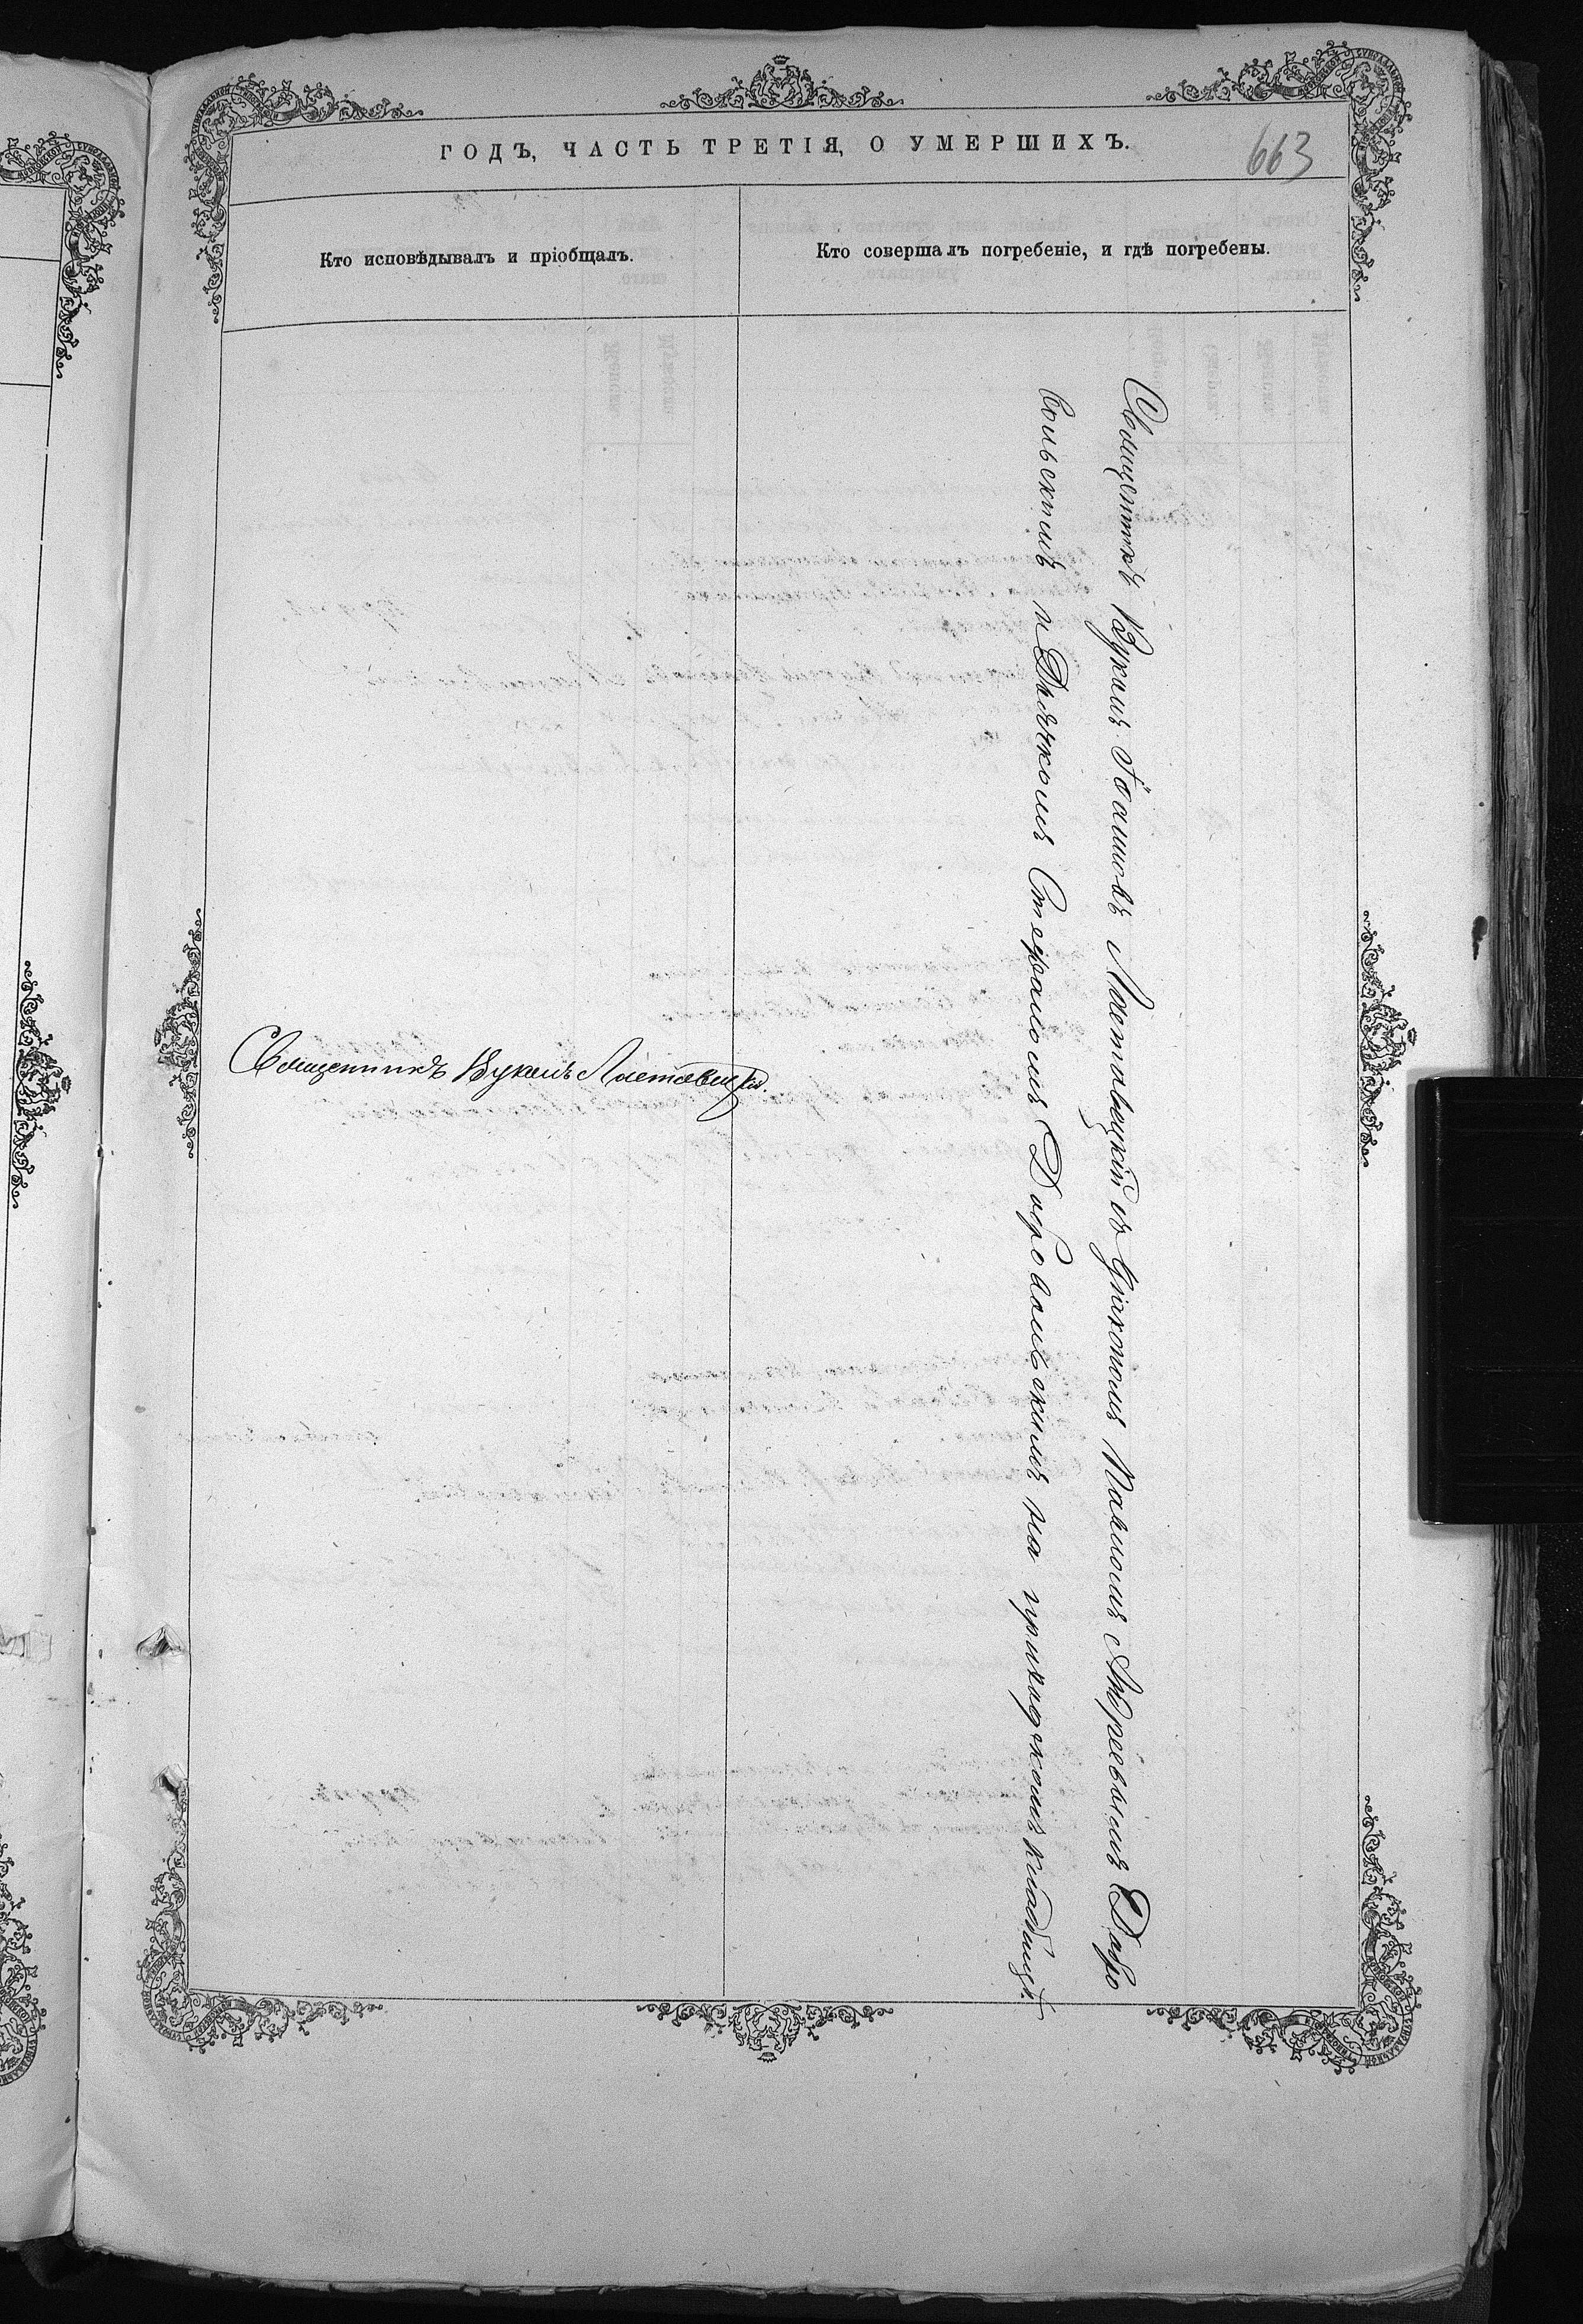 ГОДЪ, ЧАСТЬ ТРЕТІЯ, О УМЕРШИХЪ.
663
Кто исповѣдывалъ и пріобщалъ.
Кто совершалъ погребеніе, и гдѣ погребены.
Священникъ Лукаш Ластовецкій.
Священникъ Лукашъ Іоанновъ Ластовецкій съ Діакономъ Павломъ Андреевымъ Добро
вольскимъ и Дьячкомъ Стефаномъ Добровольскимъ на приходскомъ кладбищѣ.